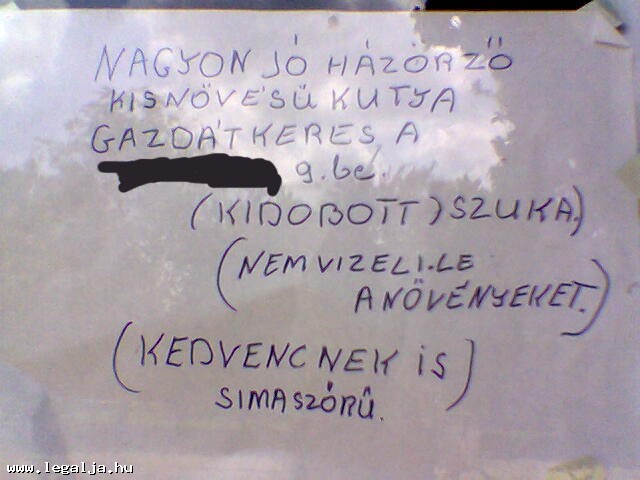 NAGYON JÓ HÁZÓRZŐ
KISNÖVÉSŰ KUTYA
GAZDÁT KERES, A
g.be.
(KIDOBOTT) SZUKA,)
(NEM VIZELI.LE
A NÖVÉNYEKET.)
(KEDVENCNEK IS)
SIMASZŐRŰ.
www.legalja.hu